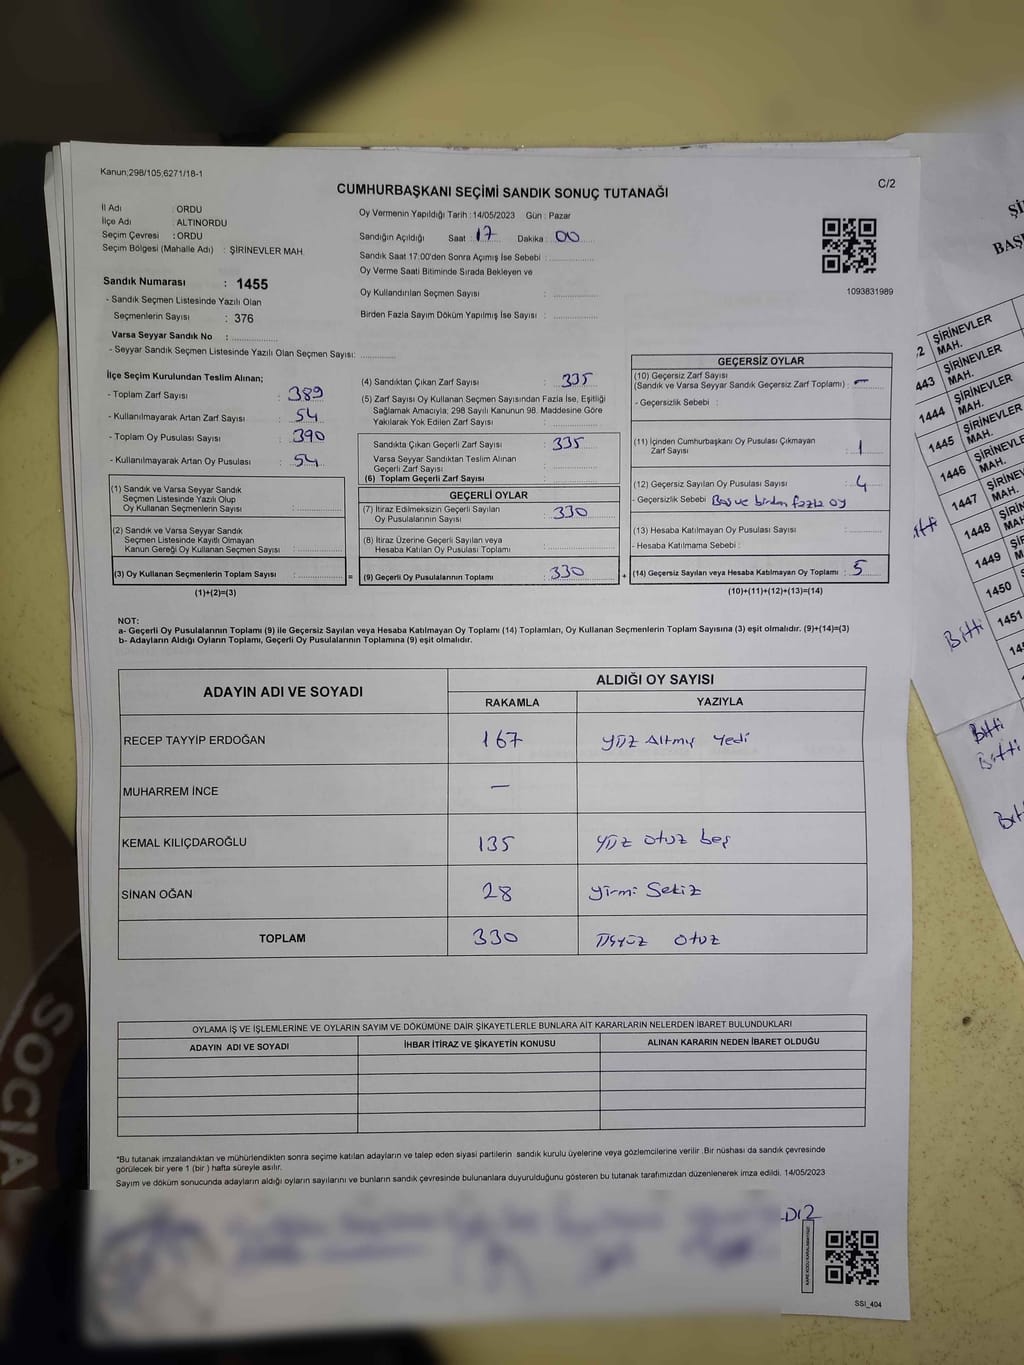 Kanun;298/105,6271/18-1
CUMHURBAŞKANI SEÇİMİ SANDIK SONUÇ TUTANAĞI
C/2
İl Adı : ORDU
İlçe Adı : ALTINORDU
Seçim Çevresi : ORDU
Seçim Bölgesi (Mahalle Adı) : ŞİRİNEVLER MAH.
Sandık Numarası : 1455
- Sandık Seçmen Listesinde Yazılı Olan
Seçmenlerin Sayısı : 376
Varsa Seyyar Sandık No :
- Seyyar Sandık Seçmen Listesinde Yazılı Olan Seçmen Sayısı:
Oy Vermenin Yapıldığı Tarih : 14/05/2023 Gün : Pazar
Sandığın Açıldığı Saat : 17 Dakika : 00
Sandık Saat 17:00'den Sonra Açımış İse Sebebi :
Oy Verme Saati Bitiminde Sırada Bekleyen ve
Oy Kullandırılan Seçmen Sayısı :
Birden Fazla Sayım Döküm Yapılmış İse Sayısı :
1093831989
İlçe Seçim Kurulundan Teslim Alınan;
- Toplam Zarf Sayısı : 389
- Kullanılmayarak Artan Zarf Sayısı : 54
- Toplam Oy Pusulası Sayısı : 390
- Kullanılmayarak Artan Oy Pusulası : 54
(1) Sandık ve Varsa Seyyar Sandık
Seçmen Listesinde Yazılı Olup
Oy Kullanan Seçmenlerin Sayısı :
(2) Sandık ve Varsa Seyyar Sandık
Seçmen Listesinde Kayıtlı Olmayan
Kanun Gereği Oy Kullanan Seçmen Sayısı :
(3) Oy Kullanan Seçmenlerin Toplam Sayısı : =
(1)+(2)=(3)
(4) Sandıktan Çıkan Zarf Sayısı : 335
(5) Zarf Sayısı Oy Kullanan Seçmen Sayısından Fazla İse, Eşitliği
Sağlamak Amacıyla; 298 Sayılı Kanunun 98. Maddesine Göre
Yakılarak Yok Edilen Zarf Sayısı :
Sandıkta Çıkan Geçerli Zarf Sayısı : 335
Varsa Seyyar Sandıktan Teslim Alınan
Geçerli Zarf Sayısı :
(6) Toplam Geçerli Zarf Sayısı :
GEÇERLİ OYLAR
(7) İtiraz Edilmeksizin Geçerli Sayılan
Oy Pusulalarının Sayısı : 330
(8) İtiraz Üzerine Geçerli Sayılan veya
Hesaba Katılan Oy Pusulası Toplamı :
(9) Geçerli Oy Pusulalarının Toplamı : 330 +
GEÇERSİZ OYLAR
(10) Geçersiz Zarf Sayısı
(Sandık ve Varsa Seyyar Sandık Geçersiz Zarf Toplamı) : –
- Geçersizlik Sebebi :
(11) İçinden Cumhurbaşkanı Oy Pusulası Çıkmayan
Zarf Sayısı : 1
(12) Geçersiz Sayılan Oy Pusulası Sayısı : 4
- Geçersizlik Sebebi : Boş ve birden fazla oy
(13) Hesaba Katılmayan Oy Pusulası Sayısı :
- Hesaba Katılmama Sebebi :
(14) Geçersiz Sayılan veya Hesaba Katılmayan Oy Toplamı : 5
(10)+(11)+(12)+(13)=(14)
NOT:
a- Geçerli Oy Pusulalarının Toplamı (9) ile Geçersiz Sayılan veya Hesaba Katılmayan Oy Toplamı (14) Toplamları, Oy Kullanan Seçmenlerin Toplam Sayısına (3) eşit olmalıdır. (9)+(14)=(3)
b- Adayların Aldığı Oyların Toplamı, Geçerli Oy Pusulalarının Toplamına (9) eşit olmalıdır.
ADAYIN ADI VE SOYADI
ALDIĞI OY SAYISI
RAKAMLA YAZIYLA
RECEP TAYYİP ERDOĞAN 167 yüz Altmış Yedi
MUHARREM İNCE –
KEMAL KILIÇDAROĞLU 135 yüz otuz beş
SİNAN OĞAN 28 yirmi Sekiz
TOPLAM 330 üçyüz otuz
OYLAMA İŞ VE İŞLEMLERİNE VE OYLARIN SAYIM VE DÖKÜMÜNE DAİR ŞİKAYETLERLE BUNLARA AİT KARARLARIN NELERDEN İBARET BULUNDUKLARI
ADAYIN ADI VE SOYADI
İHBAR İTİRAZ VE ŞİKAYETİN KONUSU
ALINAN KARARIN NEDEN İBARET OLDUĞU
*Bu tutanak imzalandıktan ve mühürlendikten sonra seçime katılan adayların ve talep eden siyasi partilerin sandık kurulu üyelerine veya gözlemcilerine verilir .Bir nüshası da sandık çevresinde
görülecek bir yere 1 (bir ) hafta süreyle asılır.
Sayım ve döküm sonucunda adayların aldığı oyların sayılarını ve bunların sandık çevresinde bulunanlara duyurulduğunu gösteren bu tutanak tarafımızdan düzenlenerek imza edildi. 14/05/2023
SSI_404
ŞİRİNEVLER
MAH.
443 ŞİRİNEVLER
MAH.
1444 ŞİRİNEVLER
MAH.
1445
1446
1447
1448
1449
1450
1451
Bitti
Bitti
Bitti
SOCIA